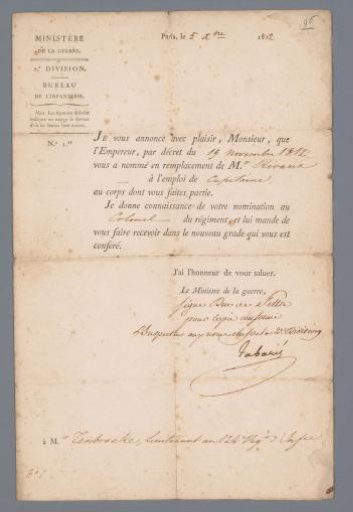 96
MINISTÈRE
DE LA GUERRE.
2.e DIVISION.
BUREAU
DE L'INFANTERIE.
N.o 1.er
Paris, le 5 Xbre 1812
JE vous annonce avec plaisir, Monsieur, que
l'Empereur, par décret du 19 novembre 1812
vous a nommé en remplacement de M.r
à l'emploi de Capitaine
au corps dont vous faites partie.
Je donne connaissance de votre nomination au
Colonel du régiment, et lui mande de
vous faire recevoir dans le nouveau grade qui vous est
conféré.
J'ai l'honneur de vous saluer.
Le Ministre de la guerre,
signé Duc de Feltre
pour copie conforme
L'Inspecteur aux revues
à M.r Tenbroeke, Lieutenant au 126 Reg.t d'Infie